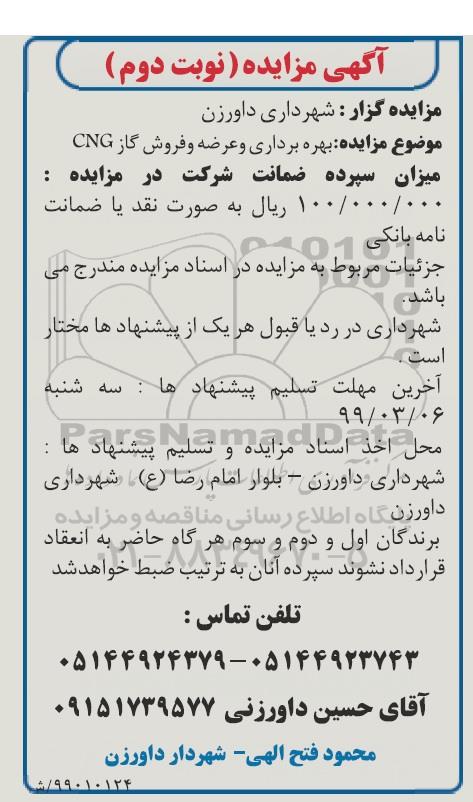 آگهی مزایده (نوبت دوم)
مزایده گزار : شهرداری داورزن
موضوع مزایده:بهره برداری وعرضه وفروش گاز CNG
میزان سپرده ضمانت شرکت در مزایده :
۱۰۰/۰۰۰/۰۰۰ ریال به صورت نقد یا ضمانت
نامه بانکی
جزئیات مربوط به مزایده در اسناد مزایده مندرج می
باشد.
شهرداری در رد یا قبول هر یک از پیشنهاد ها مختار
است .
آخرین مهلت تسلیم پیشنهاد ها : سه شنبه
۹۹/۰۳/۰۶
محل اخذ اسناد مزایده و تسلیم پیشنهاد ها :
شهرداری داورزن – بلوار امام رضا (ع) شهرداری
داورزن
برندگان اول و دوم و سوم هر گاه حاضر به انعقاد
قرارداد نشوند سپرده آنان به ترتیب ضبط خواهدشد
تلفن تماس :
۰۵۱۴۴۹۲۳۷۴۳–۰۵۱۴۴۹۲۴۳۷۹
آقای حسین داورزنی ۰۹۱۵۱۷۳۹۵۷۷
محمود فتح الهی- شهردار داورزن
۹۹۰۱۰۱۲۴/ش
ParsNamadData
پایگاه اطلاع رسانی مناقصه و مزایده
۰۲۱-۸۸۳۴۹۶۷۰-۵